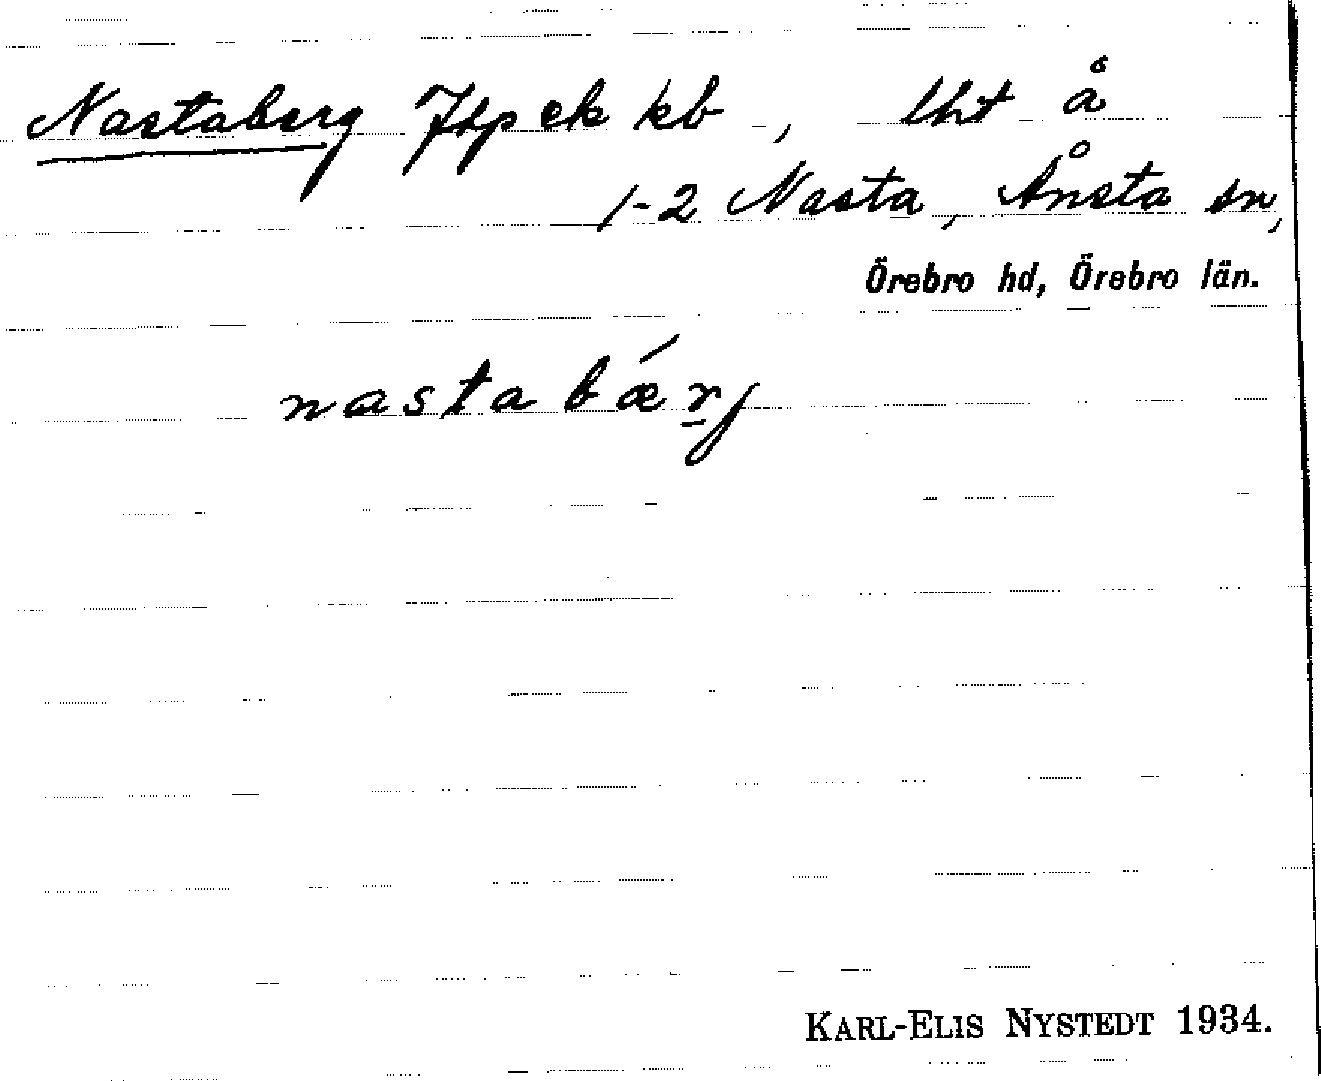 Nastaberg Jtp ek kb, lht å
1-2 Nasta, Ånsta sn,
Örebro hd, Örebro län.
nastabǽr̲j
KARL-ELIS NYSTEDT 1934.